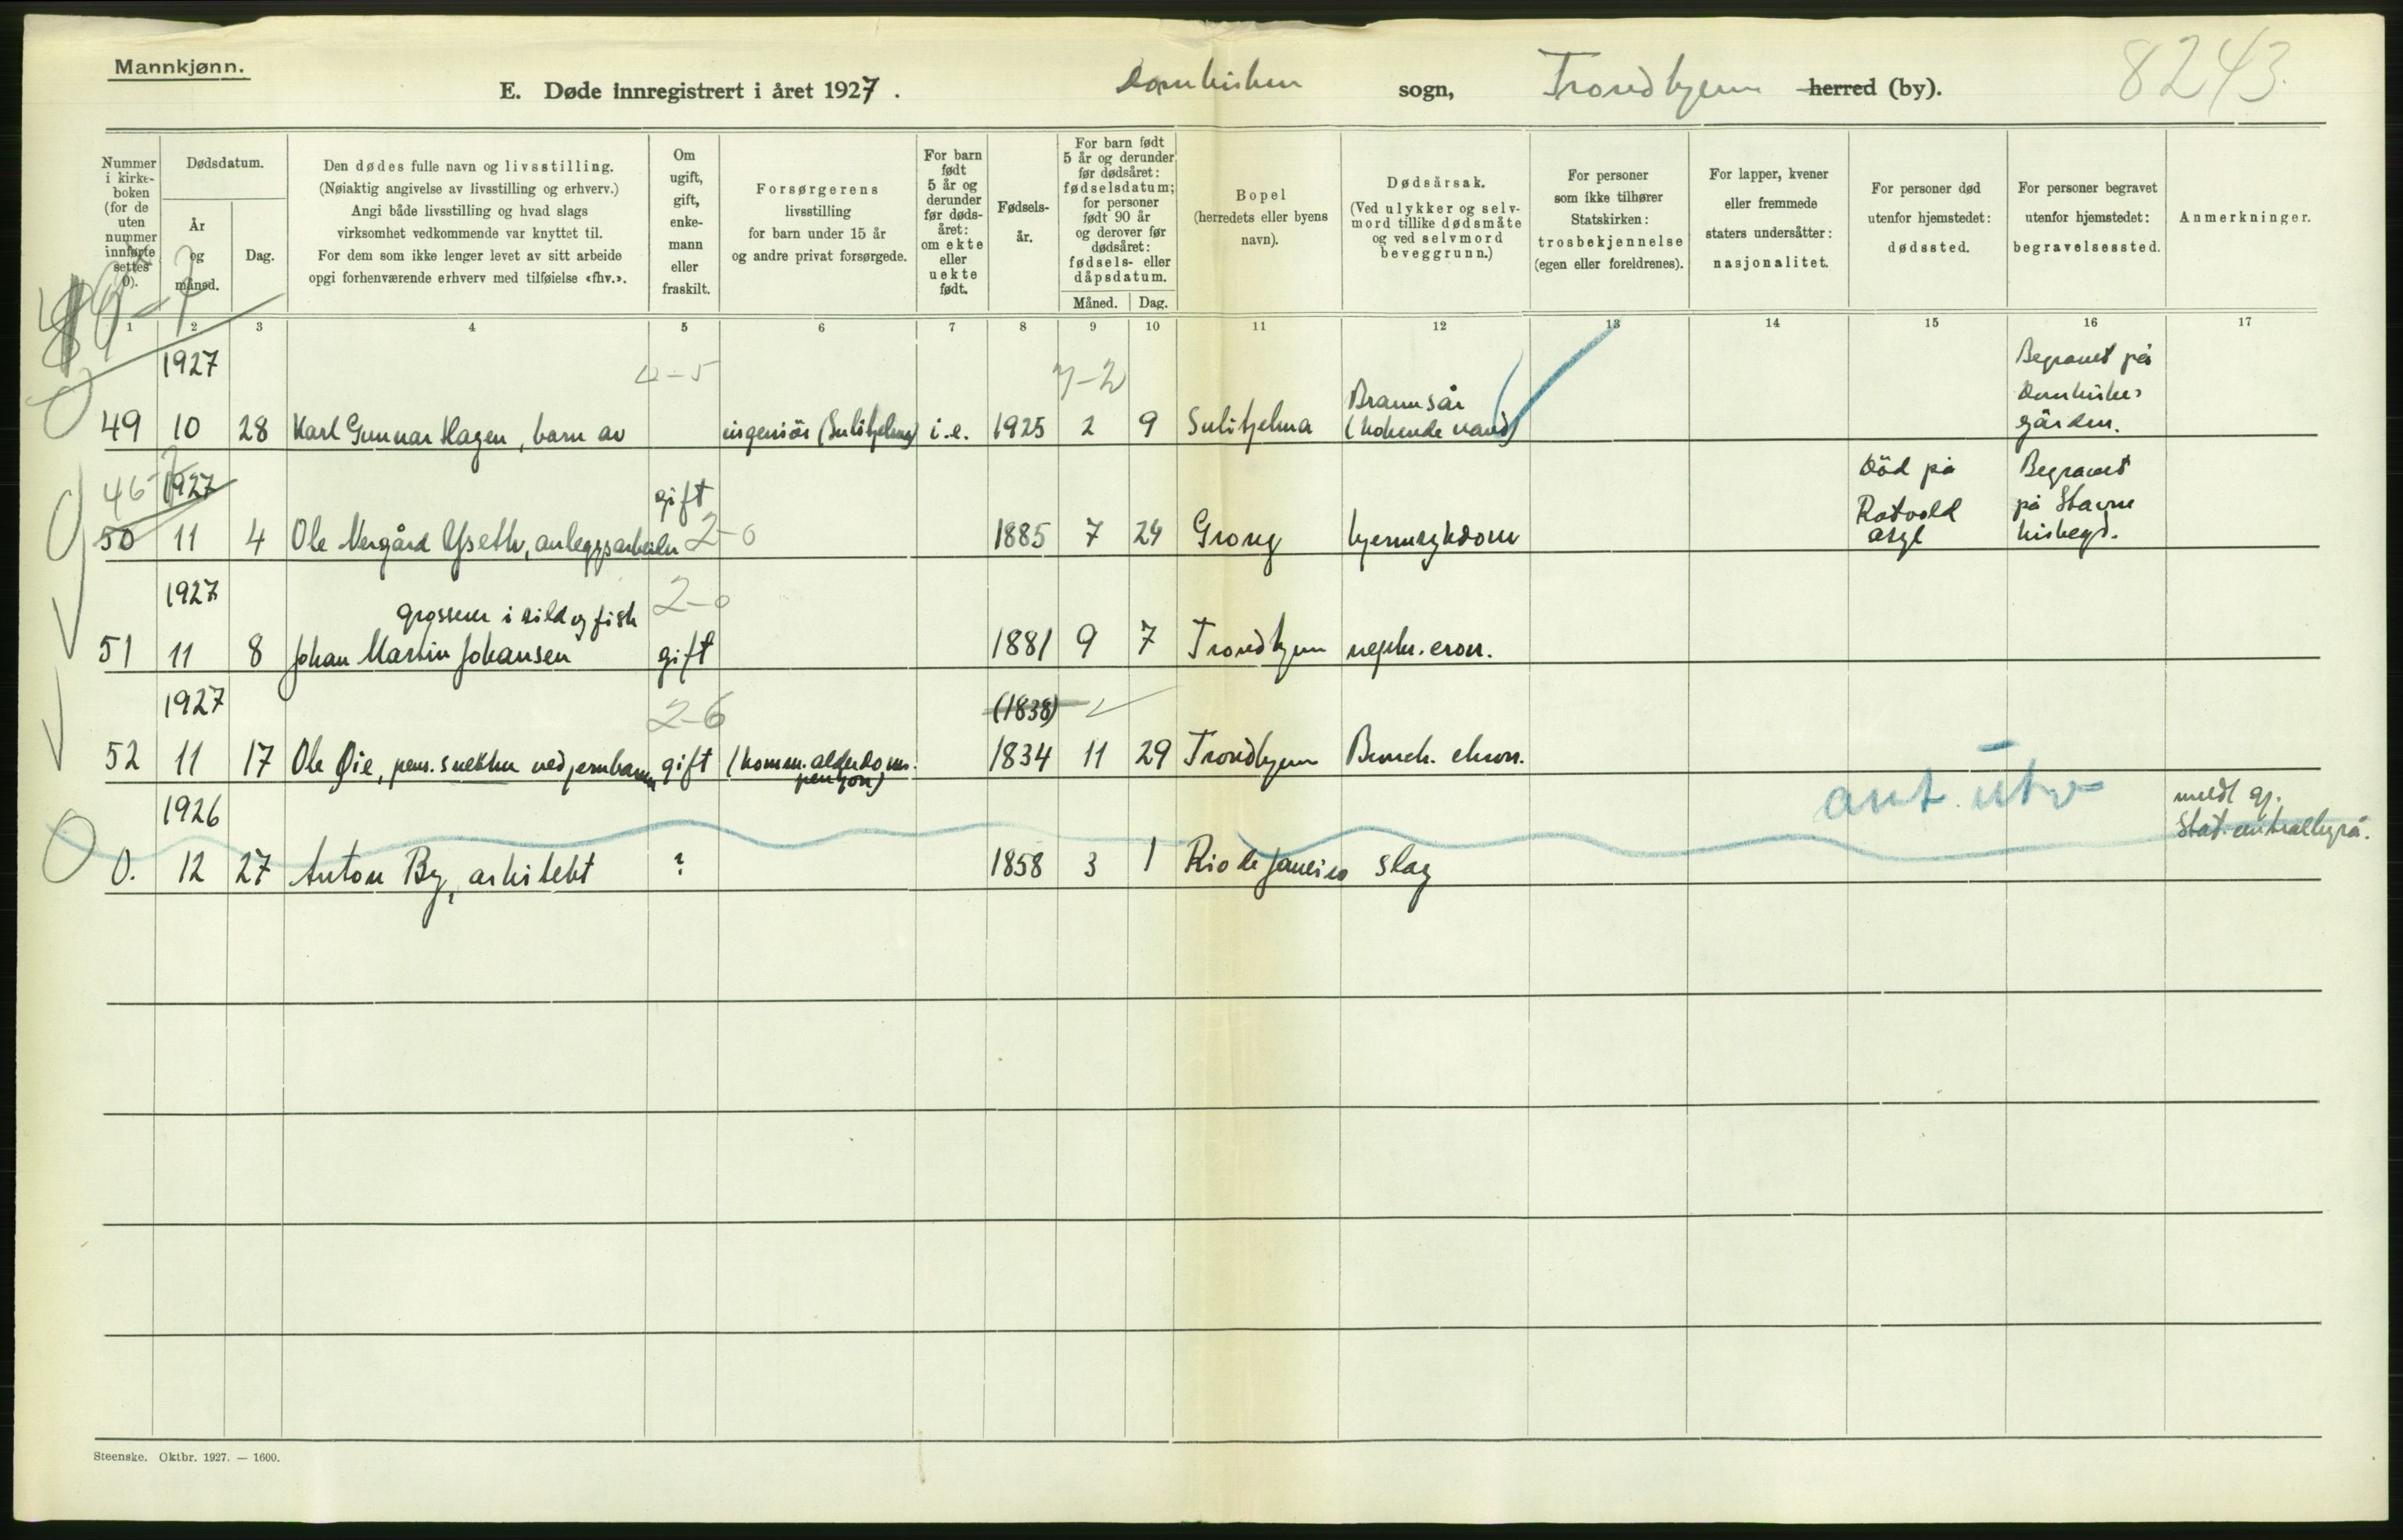 Mannkjønn.
E. Døde innregistrert i året 1927. Domkirken sogn, Trondhjem herred (by).
8243.
Nummer i kirke-boken (for de uten nummer innførte settes 0).
Dødsdatum.
År og måned.
Dag.
Den dødes fulle navn og livsstilling.
(Nøiaktig angivelse av livsstilling og erhverv.)
Angi både livsstilling og hvad slags
virksomhet vedkommende var knyttet til.
For dem som ikke lenger levet av sitt arbeide
opgi forhenværende erhverv med tilføielse «fhv.».
Om ugift, gift, enke-mann eller fraskilt.
Forsørgerens
livsstilling
for barn under 15 år
og andre privat forsørgede.
For barn født 5 år og derunder før døds-året: om ekte eller uekte født.
Fødsels-år.
For barn født
5 år og derunder
før dødsåret:
fødselsdatum;
for personer
født 90 år
og derover før
dødsåret:
fødsels- eller
dåpsdatum.
Måned. Dag.
Bopel
(herredets eller byens
navn).
Dødsårsak.
(Ved ulykker og selv-
mord tillike dødsmåte
og ved selvmord
beveggrunn.)
For personer
som ikke tilhører
Statskirken:
trosbekjennelse
(egen eller foreldrenes).
For lapper, kvener
eller fremmede
staters undersåtter:
nasjonalitet.
For personer død
utenfor hjemstedet:
dødssted.
For personer begravet
utenfor hjemstedet:
begravelsessted.
Anmerkninger.
1 2 3 4 5 6 7 8 9 10 11 12 13 14 15 16 17
1927
49 10 28 Karl Gunnar Hagen, barn av ingeniör (Sulitjelma) i.e. 1925 2 9 Sulitjelma Brannsår (kokende vand) Begravet på Domkirkegården.
4-5 7-2
46-7
1927
50 11 4 Ole Nergård Yseth, anleggsarbeider gift 2-0 1885 7 24 Grong hjernesykdom Död på Rotvold asyl Begravet på Stavne kirkegd.
1927
2-0
51 11 8 Johan Martin Johansen grosserer i sild og fisk gift 1881 9 7 Trondhjem nephr. cron.
1927
2-6
(1838)
52 11 17 Ole Øie, pens. snekker ved jernbanen gift (komm. alderdoms. pensjon) 1834 11 29 Trondhjem Bronch. chron.
1926
0. 12 27 Anton By, arkitekt ? 1858 3 1 Rio de Janeiro slag
ant. utv
meldt gj.
Stat. centralbyrå.
Steenske. Oktbr. 1927. — 1600.